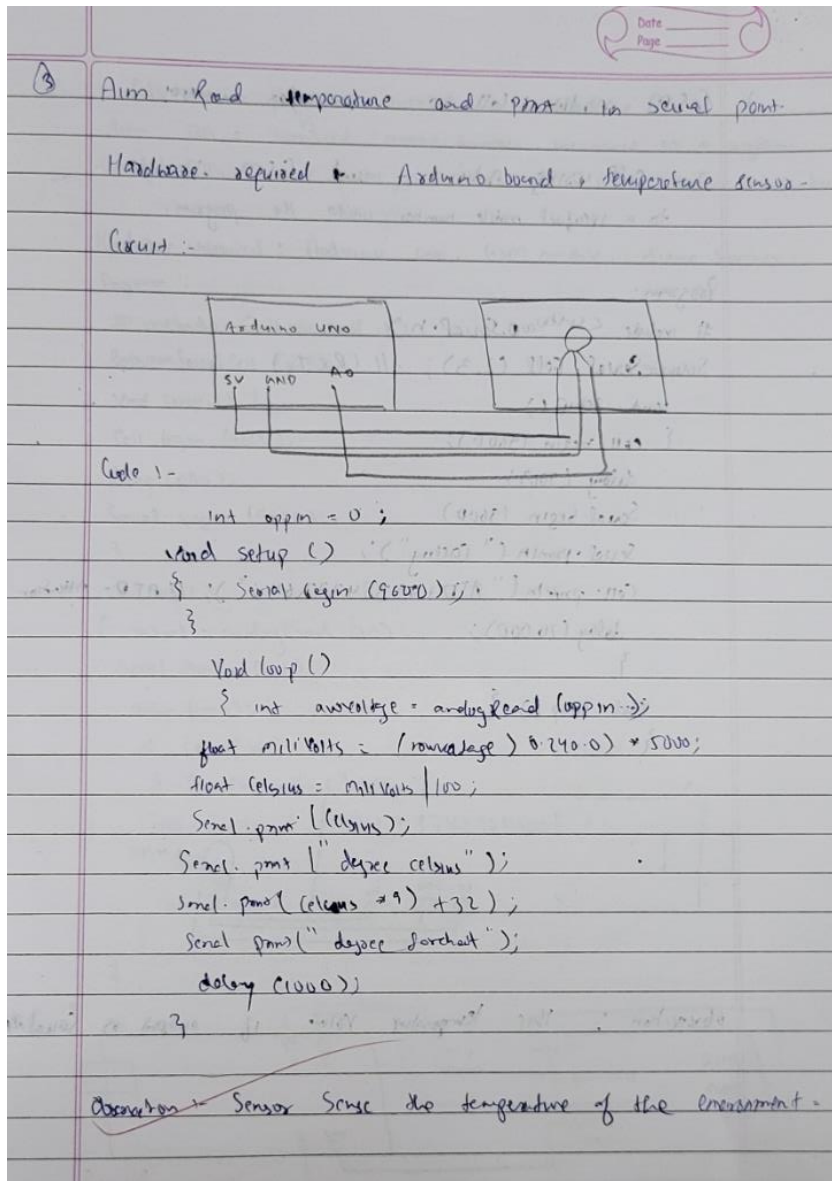 Date
Page
3
Aim : Read temperature and print in serial point.
Hardware required :- Arduino board, temperature sensor-
Circuit :-
Arduino UNO
5V GND A0
Code :-
int appin = 0 ;
void setup ()
{ Serial begin (9600);
}
Void loop ()
{ int = analogRead (appin );
float miliVolts = ( ) * 5000;
float Celsius = miliVolts / 100 ;
Serial.print (Celsius);
Serial. print (" degree celsius");
Serial. print ( celcius * 9) +32) ;
Serial print (" degree ");
delay (1000);
}
Observation :- Sensor Sense the temperature of the